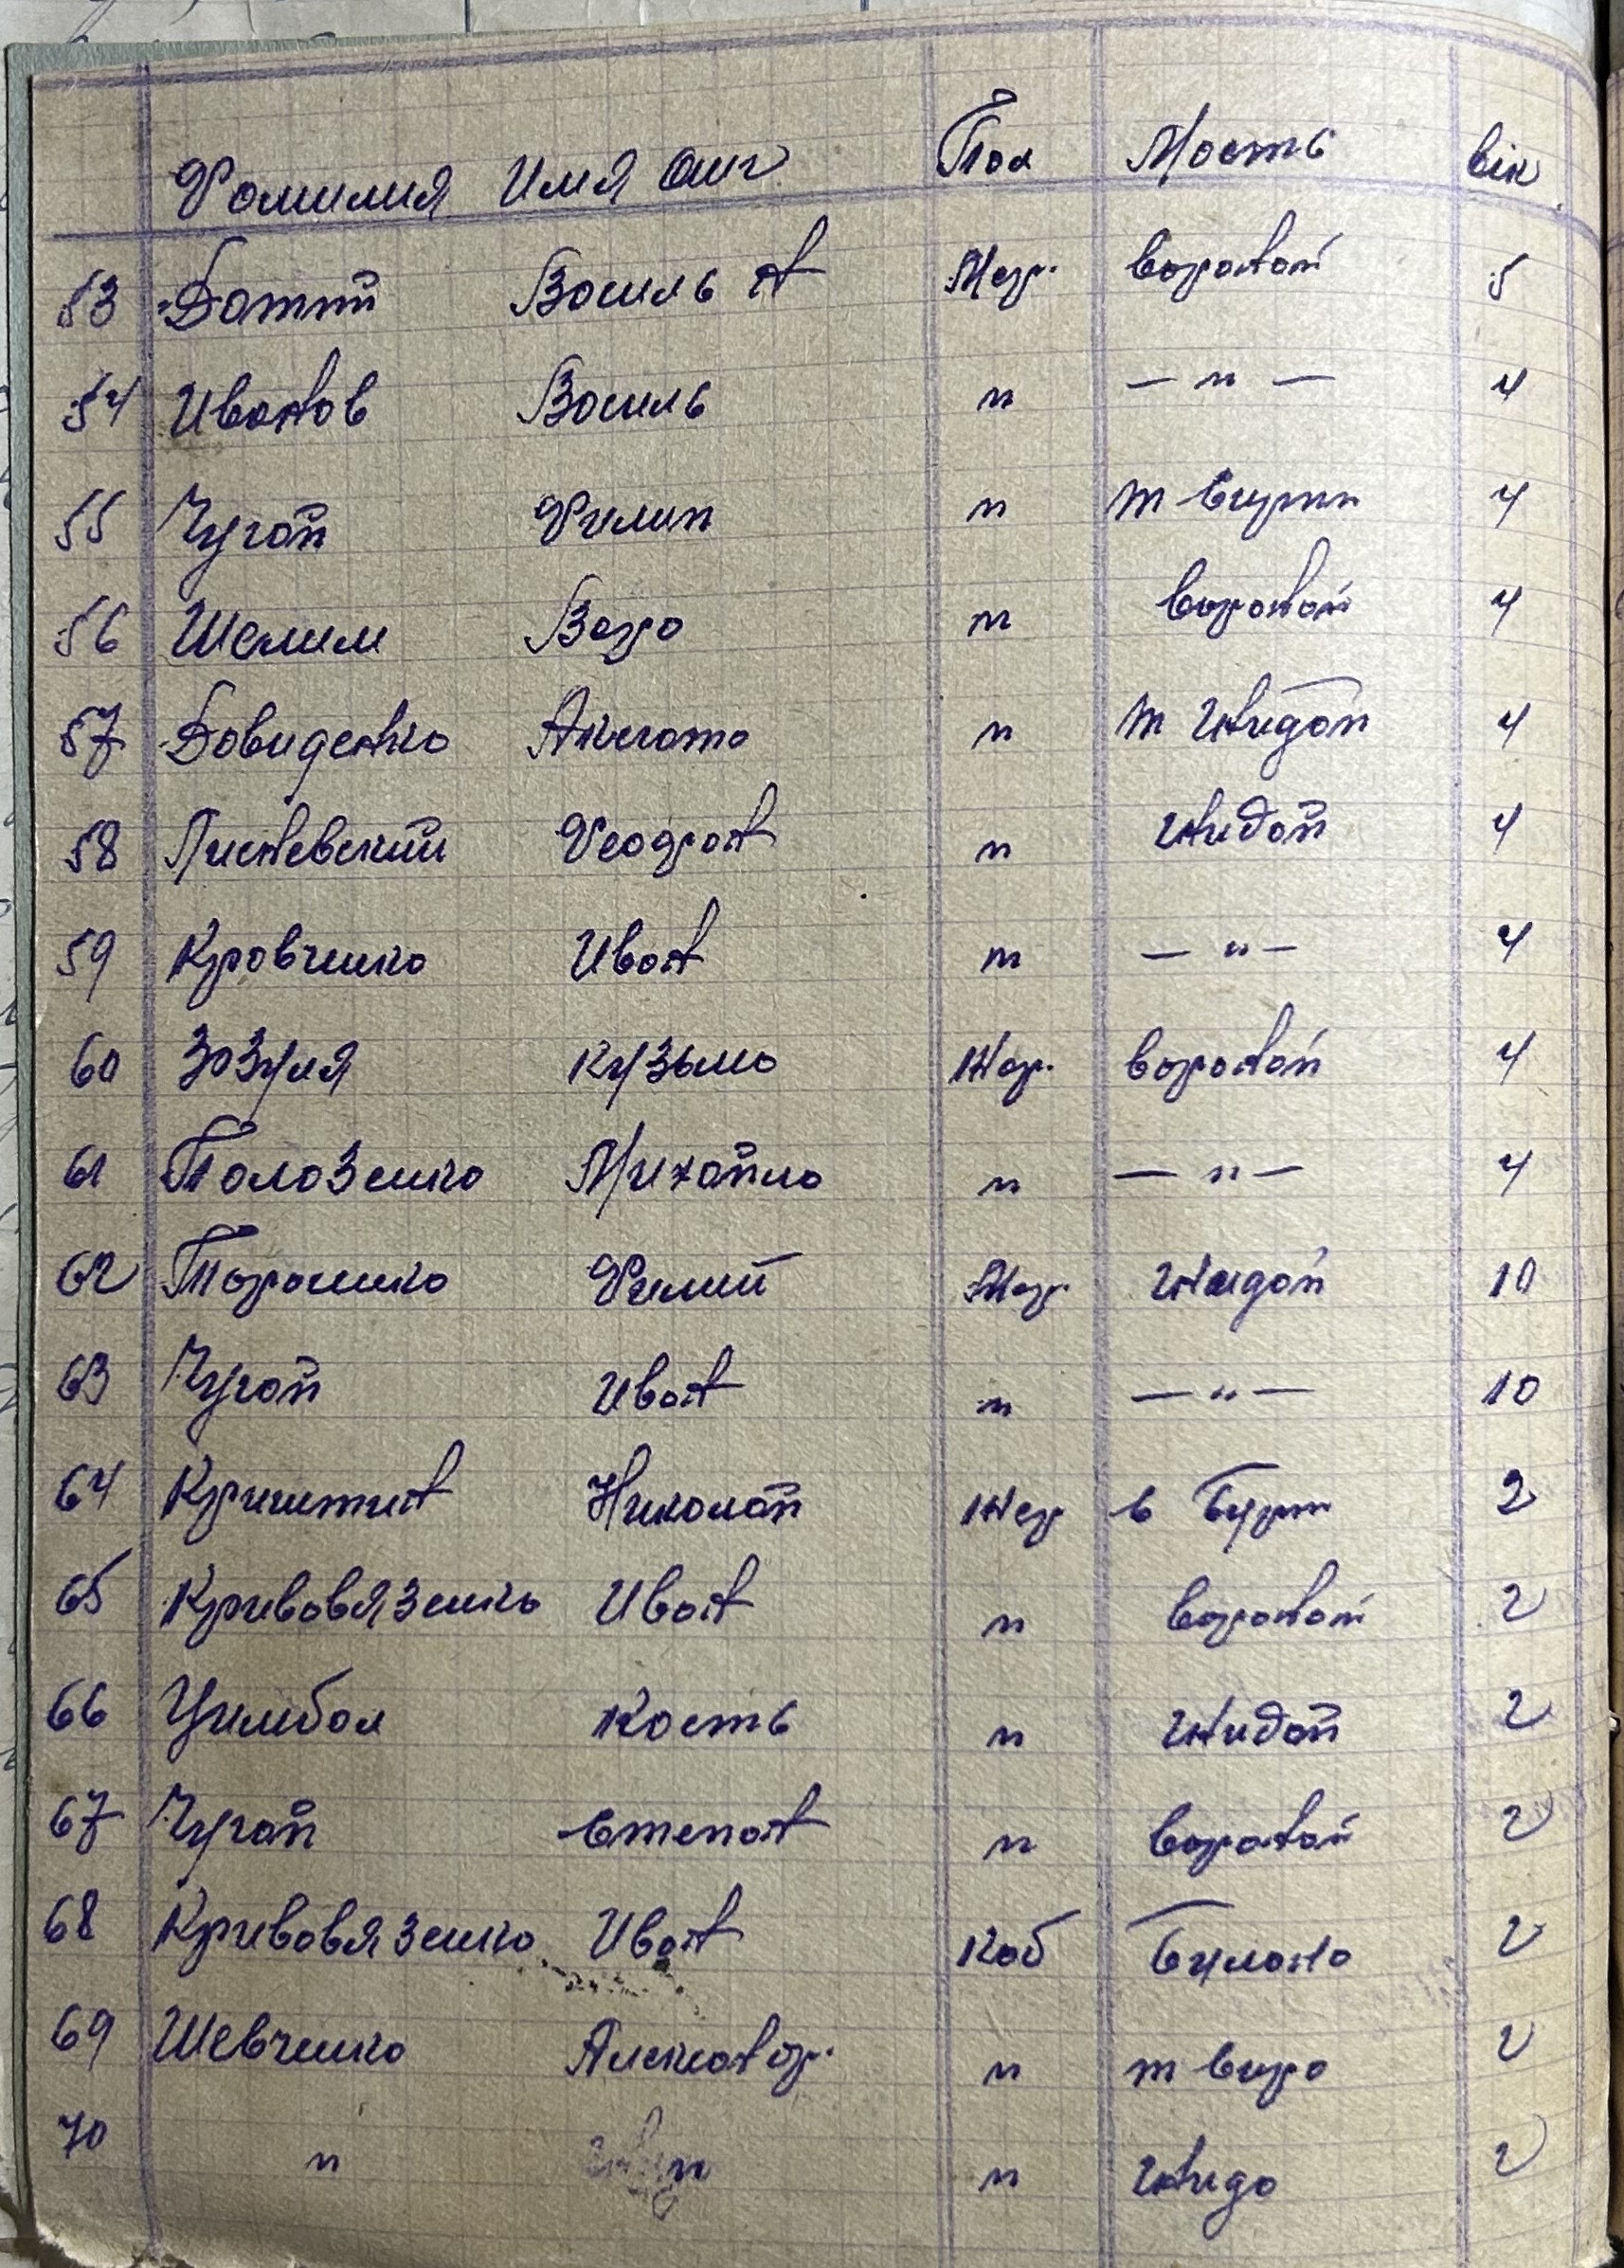 Фамилия Имя Отч Пол Масть вік
53 Батій Василь А Жер. вараной 5
54 Иванов Василь " — " — 4
55 Чугай Филип " т 4
56 Шелим Вара " вараной 4
57 Давиденко " т гнидай 4
58 Лисневский Феодран " гнидай 4
59 Кравченко Иван " — " — 4
60 Зозуля Кузьма Жер. вараной 4
61 Полозенко Михайло " — " — 4
62 Тараненко Филип Мер. гнидай 10
63 Чугай Иван " — " — 10
64 Криштин Николай Жер в 2
65 Кривовязенко Иван " вараной 2
66 Цимбал Кость " гнидай 2
67 Чугай Степан " вараной 2
68 Кривовязенко Иван Коб Булана 2
69 Шевченко Александр. " т сира 2
70 " " " гнида 2